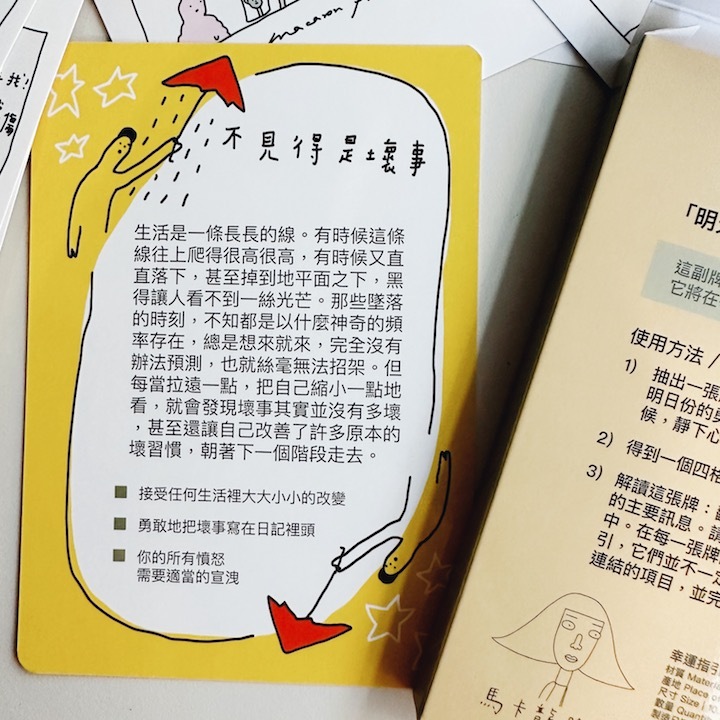 不見得是壞事
生活是一條長長的線。有時候這條
線往上爬得很高很高，有時候又直
直落下，甚至掉到地平面之下，黑
得讓人看不到一絲光芒。那些墜落
的時刻，不知都是以什麼神奇的頻
率存在，總是想來就來，完全沒有
辦法預測，也就絲毫無法招架。但
每當拉遠一點，把自己縮小一點地
看，就會發現壞事其實並沒有多壞
，甚至還讓自己改善了許多原本的
壞習慣，朝著下一個階段走去。
接受任何生活裡大大小小的改變
勇敢地把壞事寫在日記裡頭
你的所有憤怒
需要適當的宣洩
我！
macaron
「明
這副牌
它將在
使用方法 /
1) 抽出一張
明日份的
候，靜下心
2) 得到一個四格
3) 解讀這張牌：
的主要訊息。請
中。在每一張牌
引，它們並不一
連結的項目，並完
馬卡龍
幸運指引
材質 Materia
產地 Place o
尺寸 Size
數量 Quant